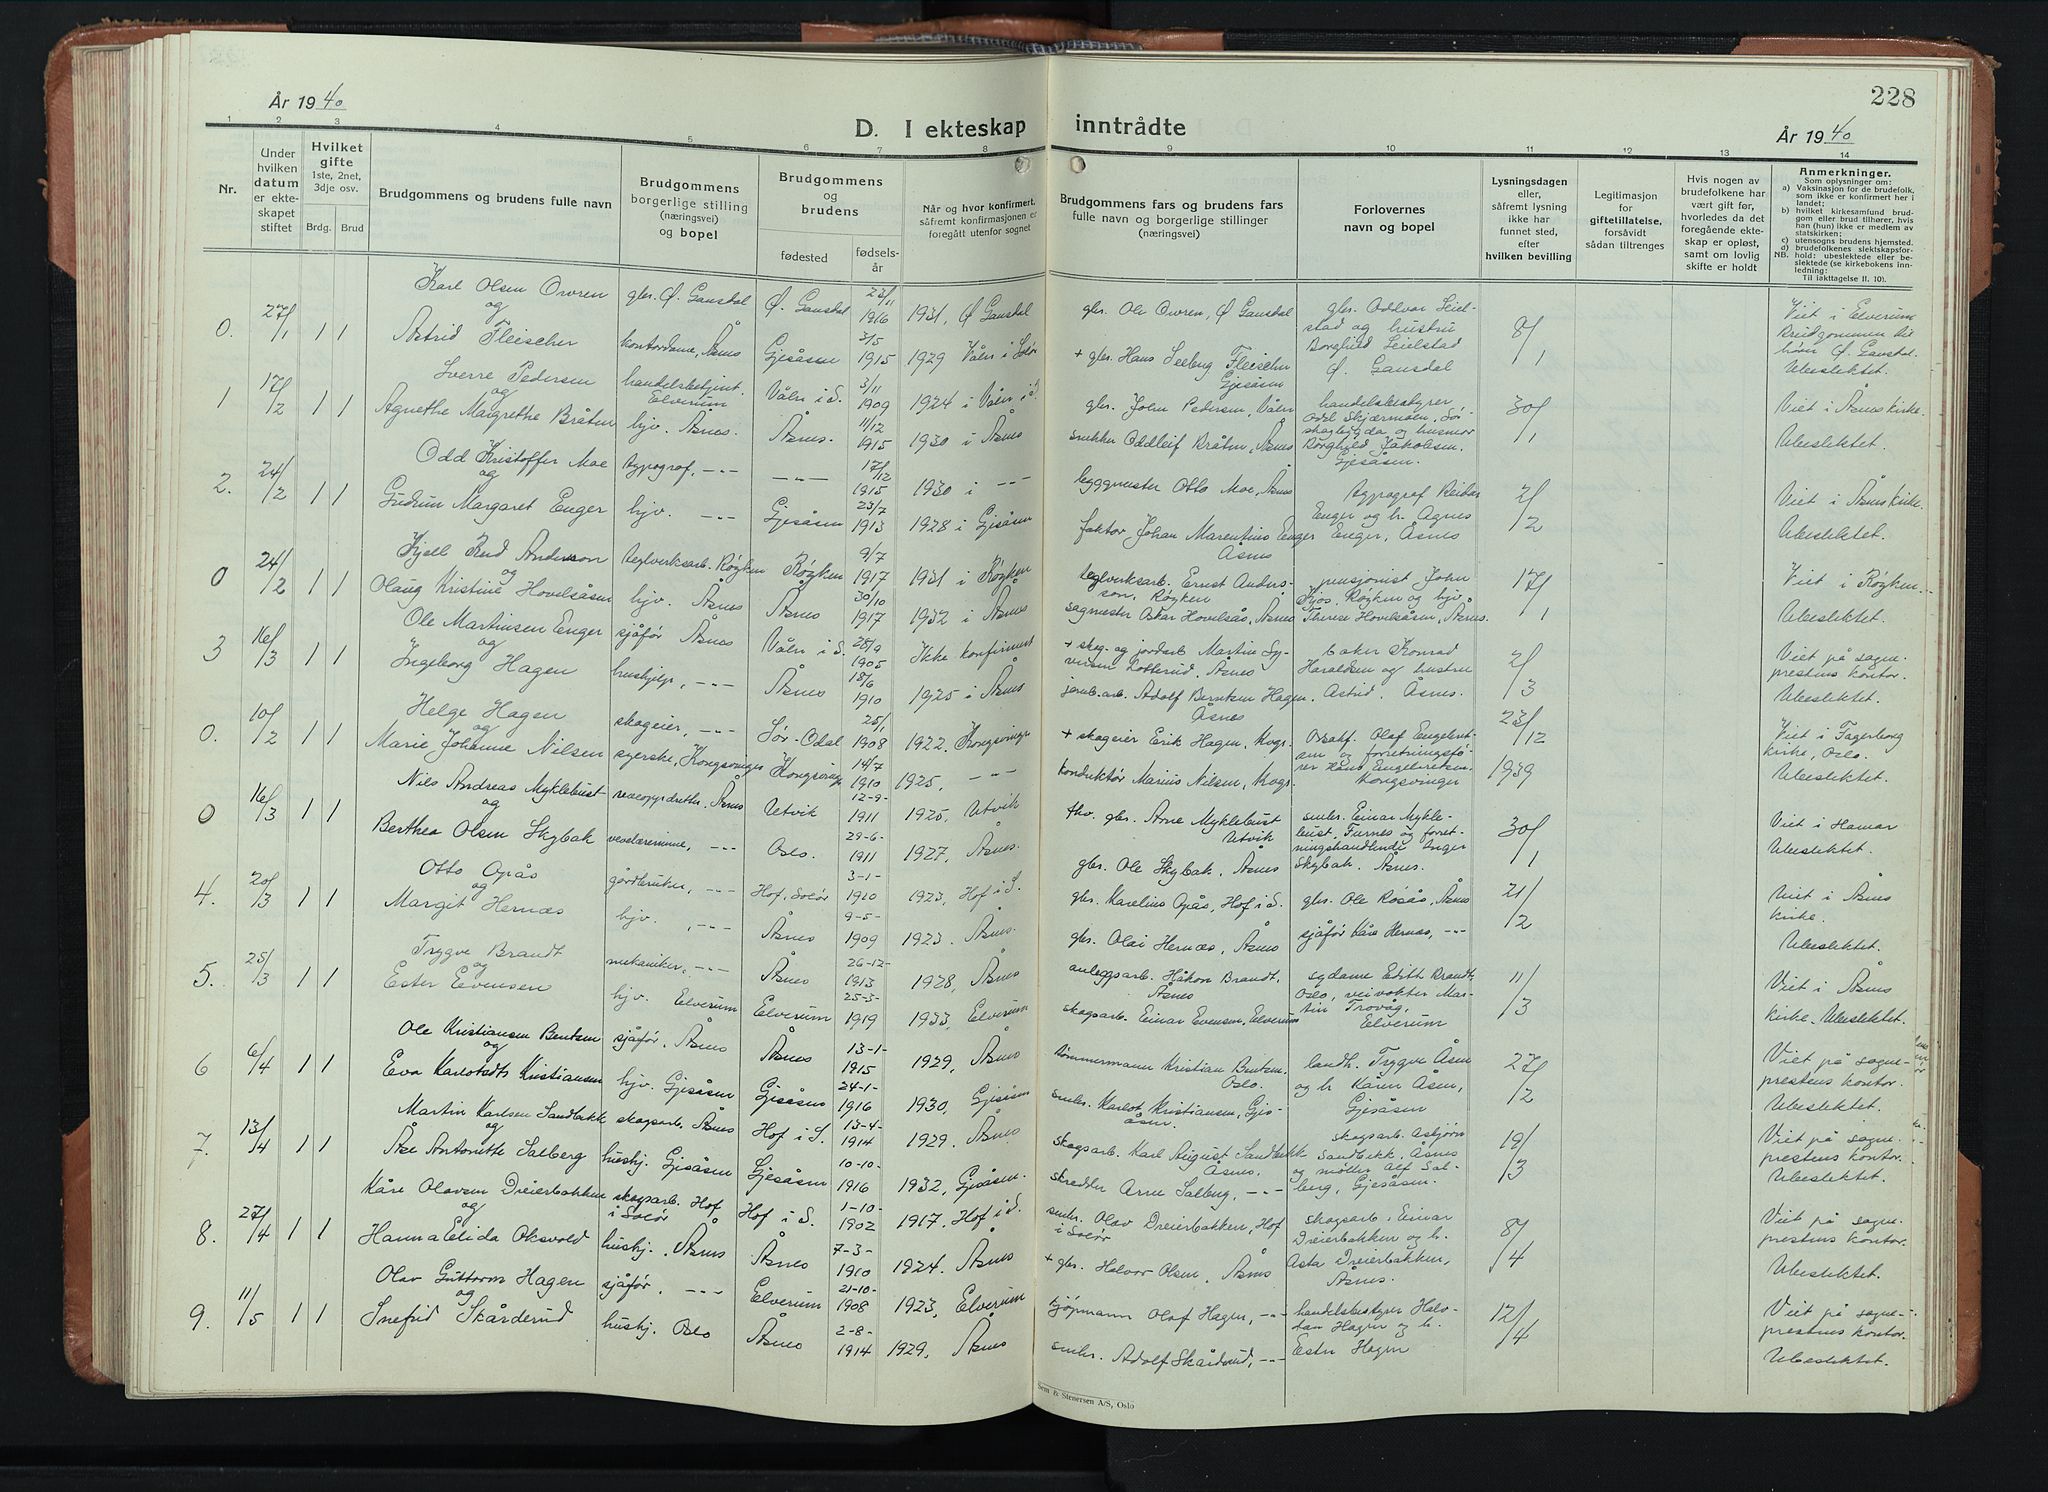 År 1940
D. I ekteskap inntrådte
År 1940
228
1 2 3 4 5 6 7 8 9 10 11 12 13 14
Nr.
Under hvilken datum er ekteskapet stiftet
Hvilket gifte 1ste, 2net, 3dje osv.
Brdg. Brud
Brudgommens og brudens fulle navn
Brudgommens borgerlige stilling (næringsvei) og bopel
Brudgommens og brudens
fødested
fødselsår
Når og hvor konfirmert, såfremt konfirmasjonen er foregått utenfor sognet
Brudgommens fars og brudens fars fulle navn og borgerlige stillinger (næringsvei)
Forlovernes navn og bopel
Lysningsdagen eller, såfremt lysning ikke har funnet sted, efter hvilken bevilling
Legitimasjon for giftetillatelse, forsåvidt sådan tiltrenges
Hvis nogen av brudefolkene har vært gift før, hvorledes da det foregående ekteskap er opløst, samt om lovlig skifte er holdt
Anmerkninger.
Som oplysninger om:
a) Vaksinasjon for de brudefolk, som ikke er konfirmert her i landet;
b) hvilket kirkesamfund brudgom eller brud tilhører, hvis han (hun) ikke er medlem av statskirken;
c) utensogns brudens hjemsted.
d) brudefolkenes slektskapsforhold: ubeslektede eller beslektede (se kirkebokens innledning:
NB.
Til iakttagelse II. 10).
0. 27/1 1 1 Karl Olsen Owren gbr. Ø. Gausdal Ø. Gausdal 23/11 1916 1931, Ø Gausdal gbr. Ole Owren, Ø Gausdal
og
Astrid Fleischer kontordame, Åsnes Gjesåsen 3/5 1915 1929 Våler i Solør + gbr. Hans Seeberg Fleischer Gjesåsen
gbr. Oddvar Leielstad og hustru Borghild Leielstad Ø. Gausdal 8/1
Viet i Elverum Ubeslektet.
1 17/2 1 1 Sverre Pedersen handelsbetjent Elverum Våler i S. 3/11 1909 1924 i Våler i S. gbr. John Pedersen, Våler
og
Agnethe Margrethe Bråten hjv. Åsnes. Åsnes. 11/12 1915 1930 i Åsnes snekker Oddleif Bråten, Åsnes
handelsbestyrer Odd Skjærmoen, Sørskogbygda og husmor Borghild Jakobsen. Gjesåsen. 30/1
Viet i Åsnes kirke. Ubeslektet.
2. 24/2 1 1 Odd Kristoffer Moe typograf, -"- -"- 17/12 1915 1930 i -"- byggmester Otto Moe, Åsnes
og
Gudrun Margaret Enger hjv. -"- Gjesåsen 23/7 1913 1928 i Gjesåsen faktor Johan Marentius Enger Åsnes
typograf Reidar Enger og h. Agnes Enger, Åsnes 2/2
Viet i Åsnes kirke. Ubeslektet.
0 24/2 1 1 Kjell Rud Anderson teglverksarb. Røyken Røyken 9/7 1917 1931 i Røyken teglverksarb. Ernst Andersson, Røyken
og
Olaug Kristine Hovelsåsen hjv. Åsnes Åsnes 30/10 1917 1932 i Åsnes sagmester Oskar Hovelsås, Åsnes
pensjonist John Kjos, Røyken og hjv. Therese Hovelsåsen, Åsnes. 17/1
Viet i Røyken. Ubeslektet.
3 16/3 1 1 Ole Martinsen Enger sjåfør Åsnes Våler i S. 28/9 1905 Ikke konfirmert + skog- og jordarb. Martin Syversen Lotterud, Åsnes
og
Ingeborg Hagen hushjelp, -"- Åsnes 18/6 1910 1925 i Åsnes jernb.arb. Adolf Berntsen Hagen, Åsnes
baker Konrad Haraldsen og hustru Astrid, Åsnes. 2/3
Viet på sogneprestens kontor. Ubeslektet.
0. 10/2 1 1 Helge Hagen skogeier, -"- Sør-Odal 25/1 1908 1922. Kongsvinger + skogeier Erik Hagen, Kvgr.
og
Marie Johanne Nilsen syerske, Kongsvinger Kongsvinger 14/7 1910 1925, -"- konduktør Marius Nilsen, Kvgr.
Olaf Engelertsen og forretningsfører Hans Engelertsen Kongsvinger 23/12 1939
Viet i Fagerborg kirke, Oslo. Ubeslektet.
0 16/3 1 1 Nils Andreas Myklebust Åsnes Utvik 12-9-1911 1925, Utvik fhv. gbr. Arne Myklebust Utvik
og
Berthea Olsen Skybak vevelærerinne, -"- Oslo. 29-6-1911 1927, Åsnes. gbr. Ole Skybak, Åsnes
smbr. Einar Myklebust, Furnes og forretningshandlende Inger Skybak. Åsnes. 30/1
Viet i Hamar Ubeslektet.
4. 20/3 1 1 Otto Opås gårdbruker, -"- Hof, Solør 3-1-1910 1923, Hof i S. gbr. Karelius Opås, Hof i S.
og
Margit Hernæs hjv. -"- Åsnes 9-5-1909 1923. Åsnes. gbr. Olai Hernæs, Åsnes
gbr. Ole Rösås, Åsnes sjåfør Kåre Hernæs, -"- 21/2
Viet i Åsnes kirke. Ubeslektet.
5. 25/3 1 1 Trygve Brandt mekaniker, -"- Åsnes 26-12-1913 1928, Åsnes anleggsarb. Håkon Brandt, Åsnes
og
Ester Evensen hjv. Elverum Elverum 25-3-1919 1933, Elverum skogsarb. Einar Evensen, Elverum
sydame Edith Brandt, Oslo, veivokter Martin Trovåg, Elverum 11/3
Viet i Åsnes kirke. Ubeslektet.
6 6/4 1 1 Ole Kristiansen Bentsen sjåfør. Åsnes Åsnes 13-1-1915 1929, Åsnes tømmermann Kristian Bentsen, Oslo.
og
Eva Karlstedts Kristiansen hjv. Gjesåsen Gjesåsen 24-1-1916 1930, Gjesåsen smbr. Karlot Kristiansen, Gjesåsen.
landh. Trygve Åsen og h Kåren Åsen, Gjesåsen 27/2
Viet på sogneprestens kontor. Ubeslektet.
7. 13/4 1 1 Martin Karlsen Sandbekk skogsarb. Åsnes Hof i S. 13-4-1914 1929. Åsnes skogsarb. Karl August Sandbekk Åsnes.
og
Åse Antonette Salberg hushj. Gjesåsen Gjesåsen 10-10-1916 1932, Gjesåsen. skredder Arne Salberg, -"-
skogsarb. Asbjørn Sandbekk, Åsnes og møller Alf Salberg, Gjesåsen. 19/3
Viet på sogneprestens kontor. Ubeslektet.
8. 27/4 1 1 Kåre Olavsen Dreierbakken skogsarb. Hof i Solør Hof i S. 1-10-1902 1917. Hof i S. smbr. Olav Dreierbakken, Hof i Solør
og
Hanna Elida Oksvold hushj. Åsnes Åsnes 7-3-1910 1924. Åsnes + gbr. Halvor Olsen. Åsnes
skogsarb. Einar Dreierbakken og h. Asta Dreierbakken, Åsnes. 8/4
Viet på sogneprestens kontor. Ubeslektet.
9. 11/5 1 1 Olav Guttorm Hagen sjåfør. -"- Elverum 21-10-1908 1923, Elverum kjøpmann Olaf Hagen, -"-
og
Snefrid Skårderud hushj. Oslo Åsnes 2-8-1914 1929, Åsnes smbr. Adolf Skårderud, -"-
handelsbestyrer Halvdan Hagen og h. Ester Hagen 12/4
Viet på sogneprestens kontor. Ubeslektet.
Sem & Stenersen A/S, Oslo